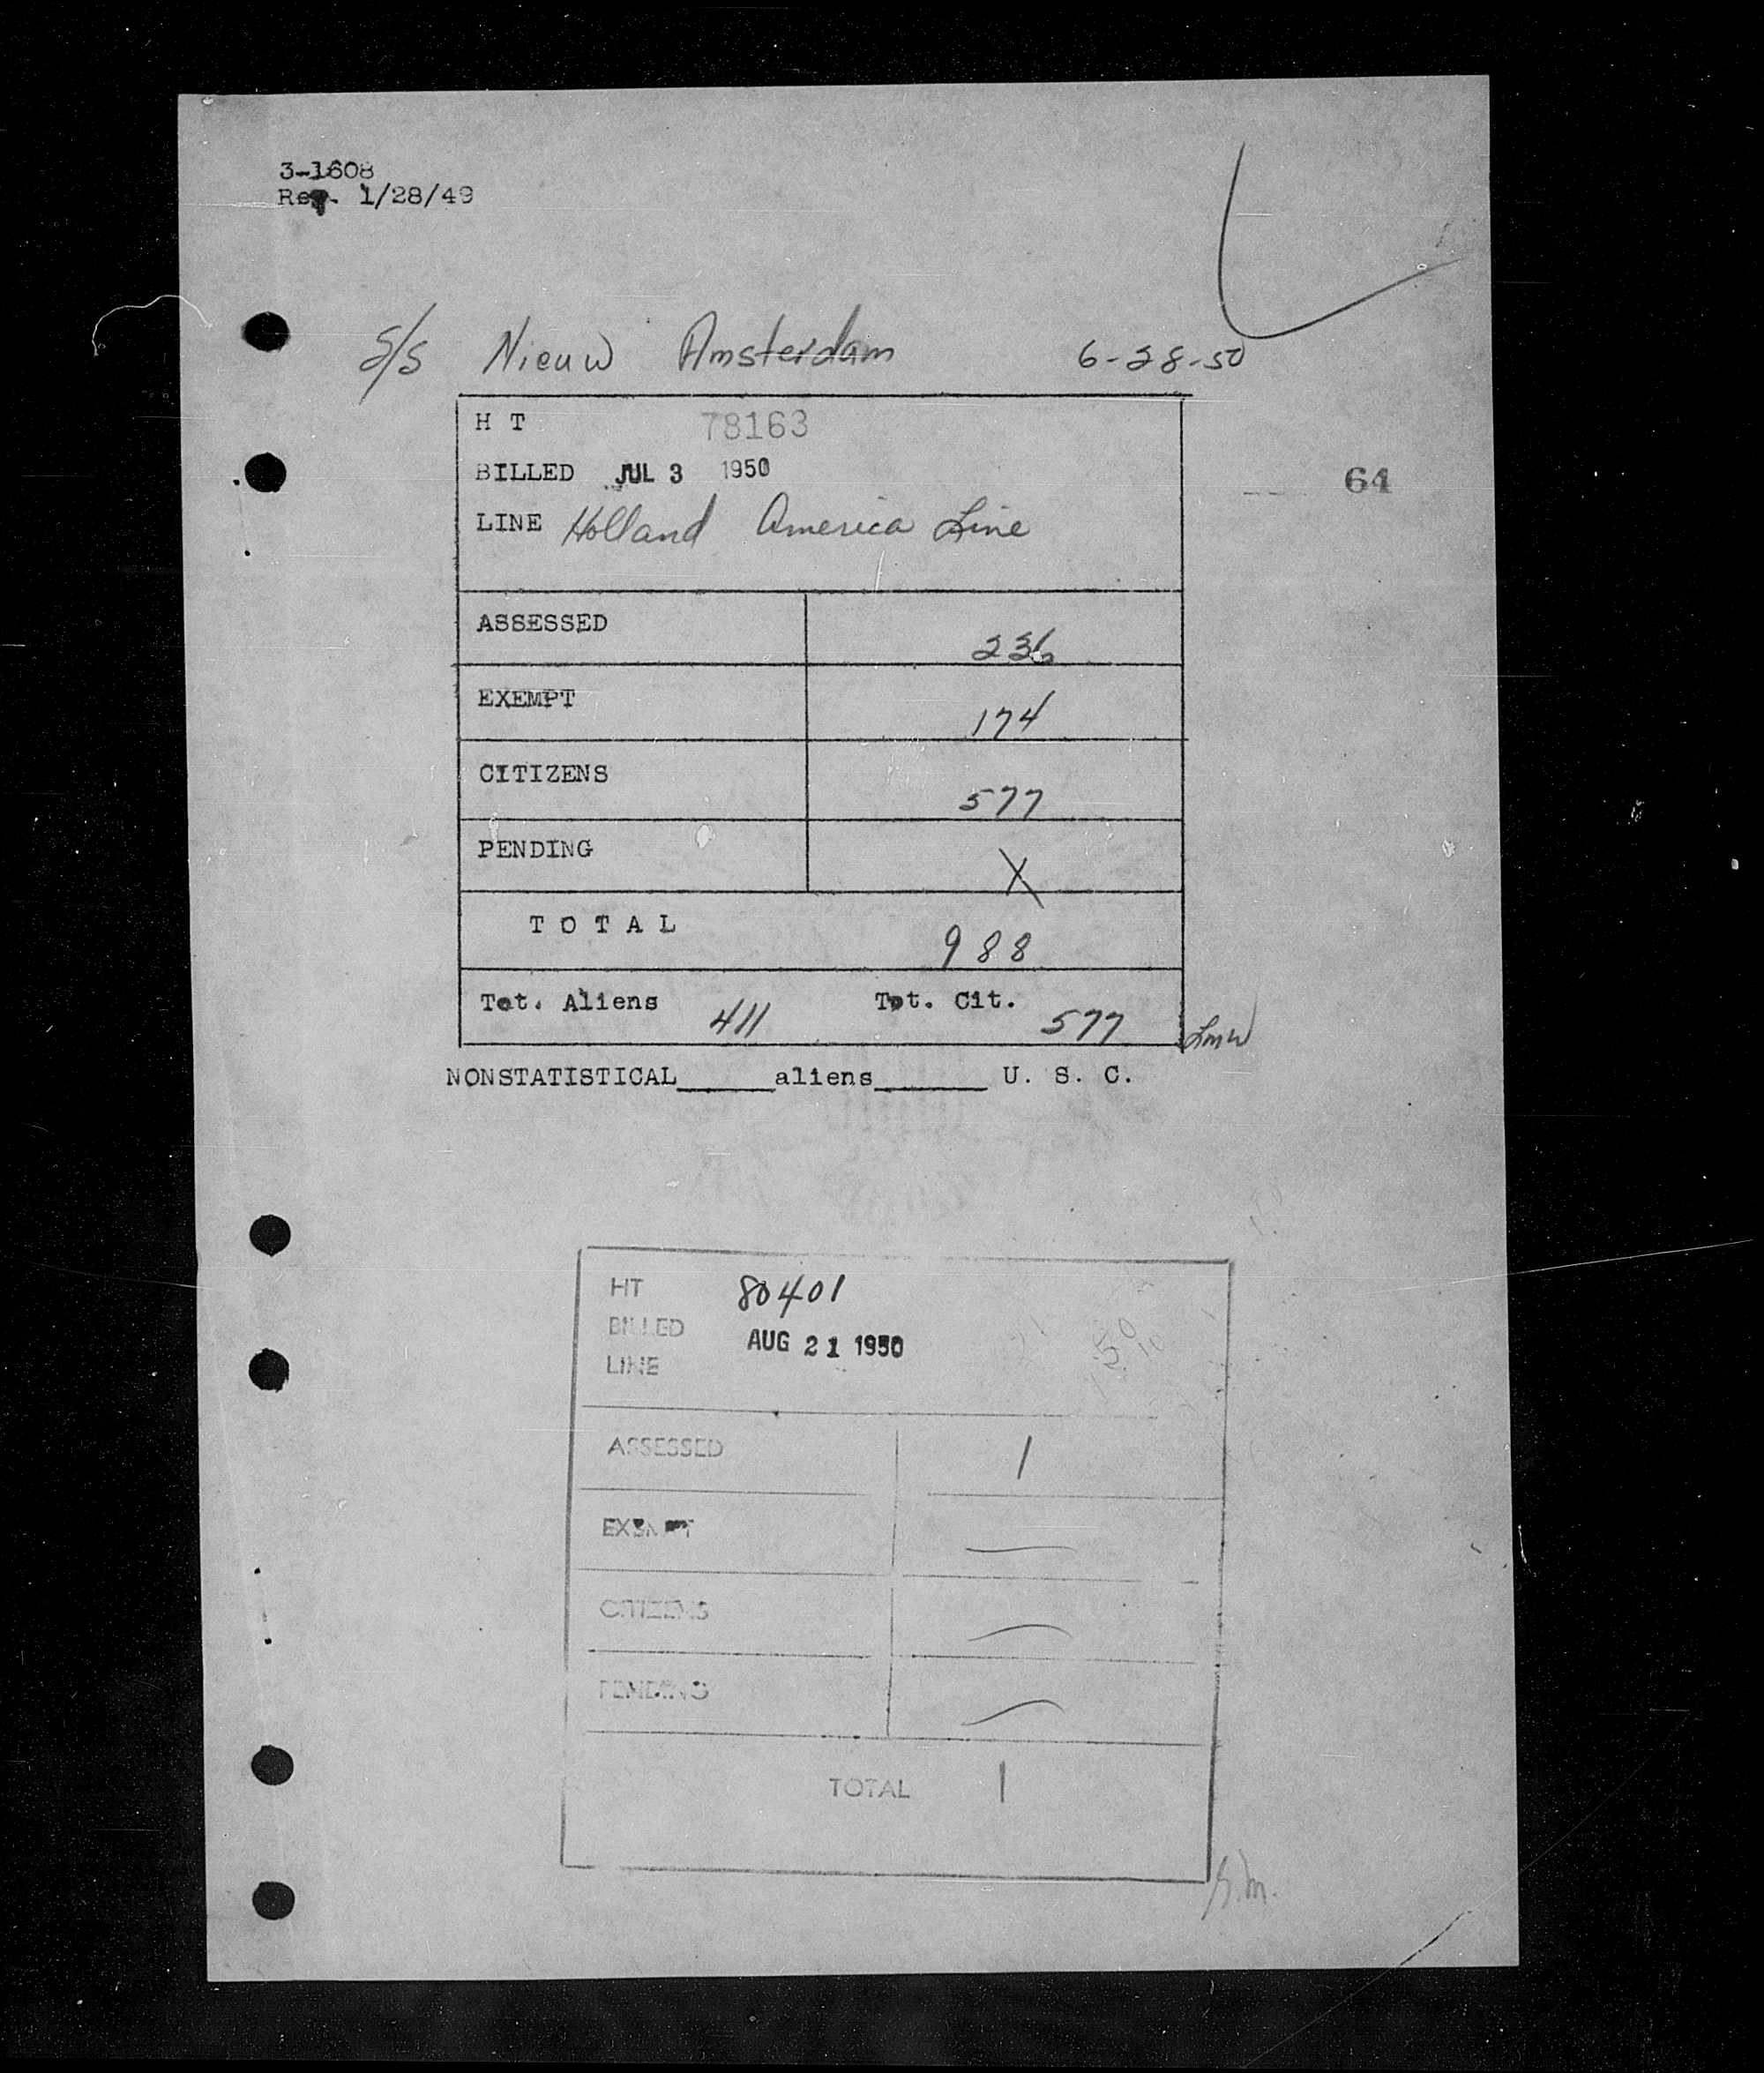 3-1608
Rev. 1/28/49
S/S Nieuw Amsterdam 6-28-50
H T 78163
BILLED JUL 3 1950
64
LINE Holland America Line
ASSESSED 236
EXEMPT 174
CITIZENS 577
PENDING X
T O T A L 988
Tot. Aliens 411 Tot. Cit. 577
LMW
NONSTATISTICAL______aliens_______ U. S. C.
HT 80401
BILLED AUG 21 1950
LINE
ASSESSED 1
EXEMPT —
CITIZENS —
PENDING —
TOTAL 1